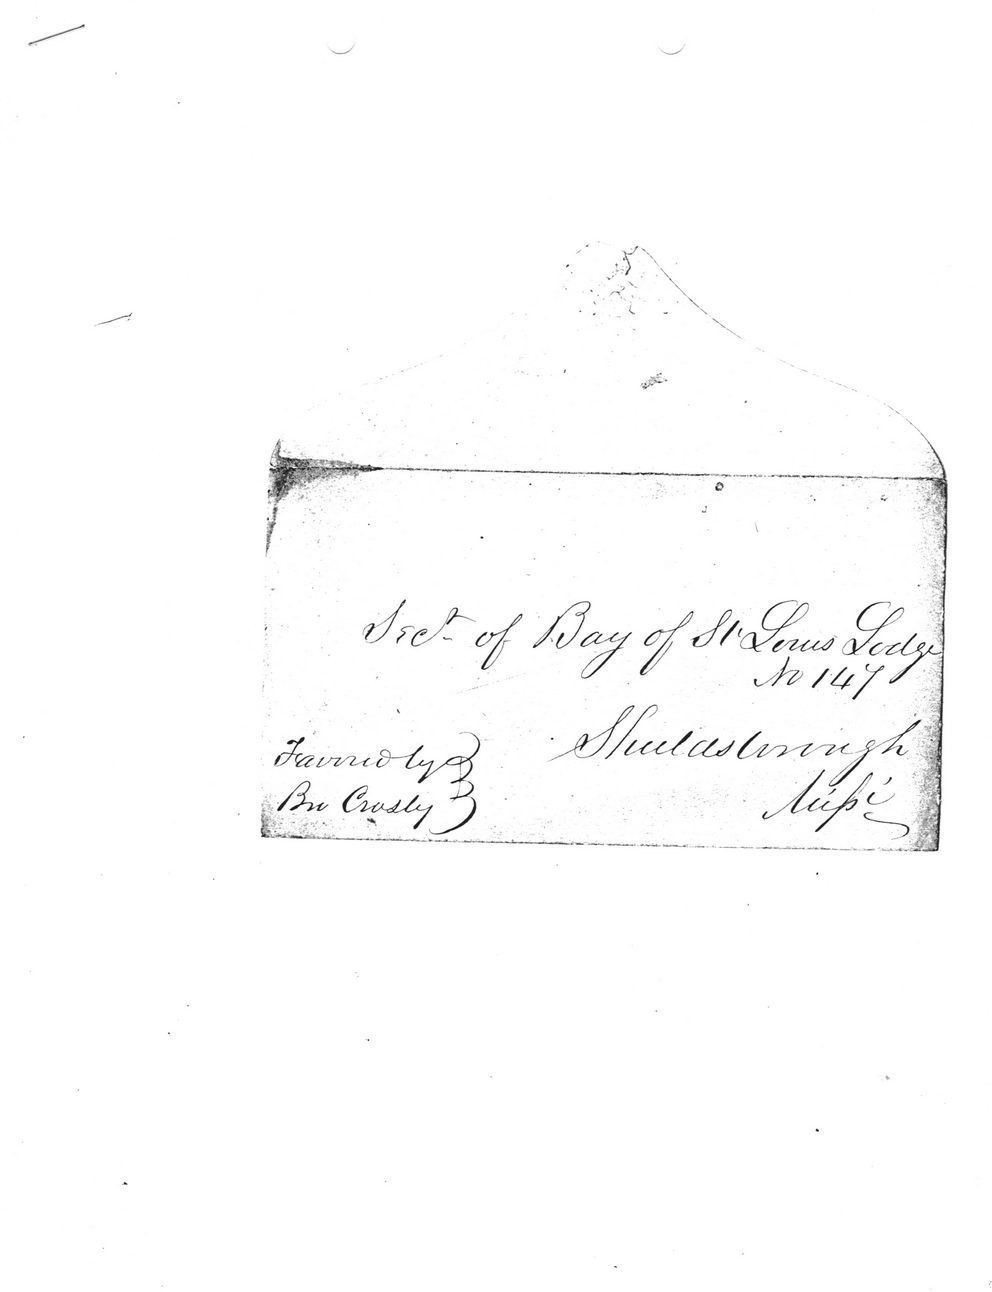 Sect. of Bay of St Louis Lodge
No 147
Shieldsborough
Missi
Favored by
Bro Crosby